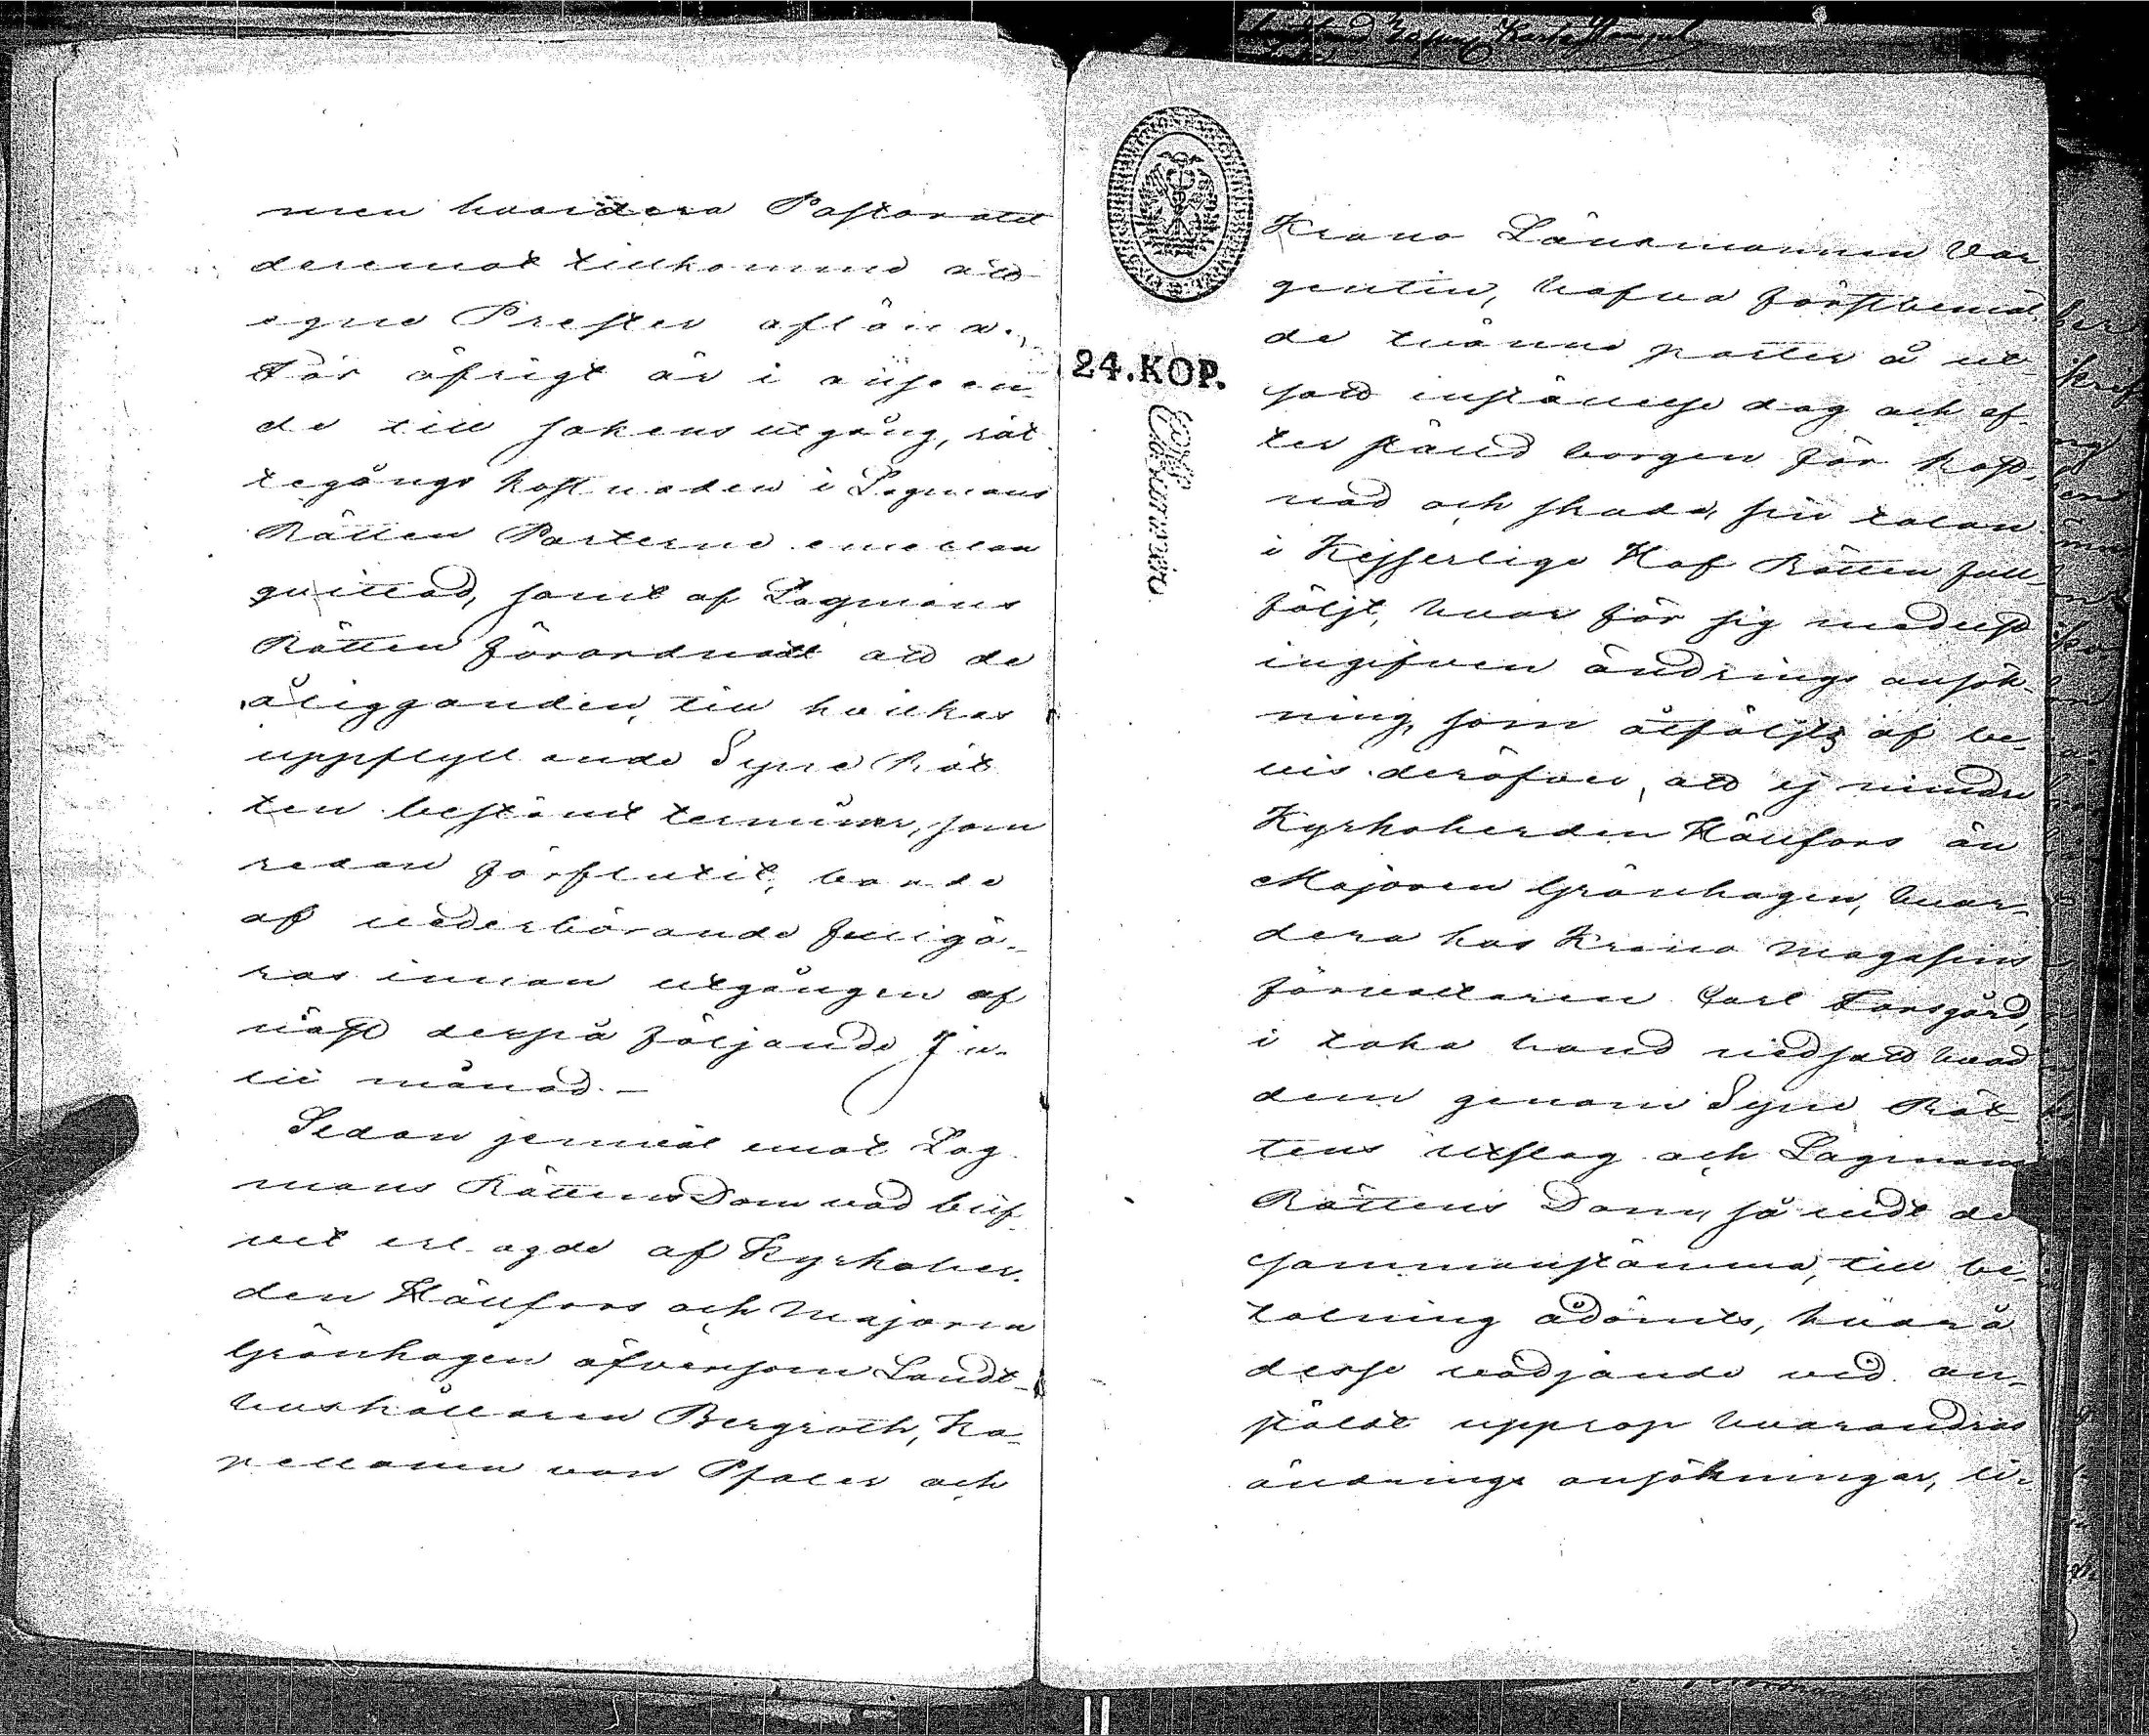 men hvardera Pastoratet
deremot tillkomme att
egne Prester aflöna.,
För öfrigt är i anseen-
de till sakens utgång, rät-
tegångs kostnaden i Lagmans
Rätten Parterne emellan
quittad, samt af Lagmans
Rätten förordnadt att de
åligganden, till hvilkas
uppfyllande Syne Rät-
ten bestämt terminer, som
redan förflutit, borde
af vederbörande fullgö-
ras innan utgången af
näst derpå följande Ju-
lii månad.—
Sedan jemväl emot Lag-
mans Rättens Dom vad blif-
vit erlagde af Kyrkoher-
den Hällfors och Majoren
Grönhagen äfvensom Landt-
hushållaren Bergroth, Ka-
pellanen von Pfaler och
24.KOP.
Krono Länsmannen Var-
gentin, hafva förstbemäl-
de tvänne parter å ut-
satt inställelse dag och ef-
ter ställd borgen för kost-
nad och skada, sin talan
i Kejserliga Hof Rätten full-
följt, hvar för sig medelst
ingifven ändrings ansök-
ning, som åtföljts af be-
vis deröfver, att ej mindre
Kyrkoherden Hällfors än
Majoren Grönhagen, hvar-
dera hos Krono Magasins
förvaltaren Carl Forsgård,
i taka hand nedsatt hvad
dem genom Syne Rät-
tens utslag och Lagmans
Rättens Dom, så vidt de
sammanstämma, till be-
talning ådömts, hvarå
desse vädjande vid an-
stäldt upprop hvarandras
ändrings ansökningar, li-